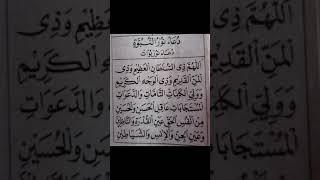 دُعَاءْ نُوْرُ النُّبُوَّةِ
دعاء نور نبوات
اَللّٰهُمَّ ذِى السُّلْطَانِ الْعَظِيْمِ وَذِى
الْمَنِّ الْقَدِيْمِ وَذِى الْوَجْهِ الْكَرِيْمِ
وَوَلِيِّ الْكَلِمَاتِ التَّامَّاتِ وَالدَّعَوَاتِ
الْمُسْتَجَابَاتِ عَاقِلِ الْحَسَنِ وَالْحُسَيْنِ
مِنْ اَنْفُسِ الْحَقِّ عَيْنِ الْقُدْرَةِ وَالنَّاظِرِيْنَ
وَعَيْنِ الْجِنِّ وَالْاِنْسِ وَالشَّيَاطِيْنِ